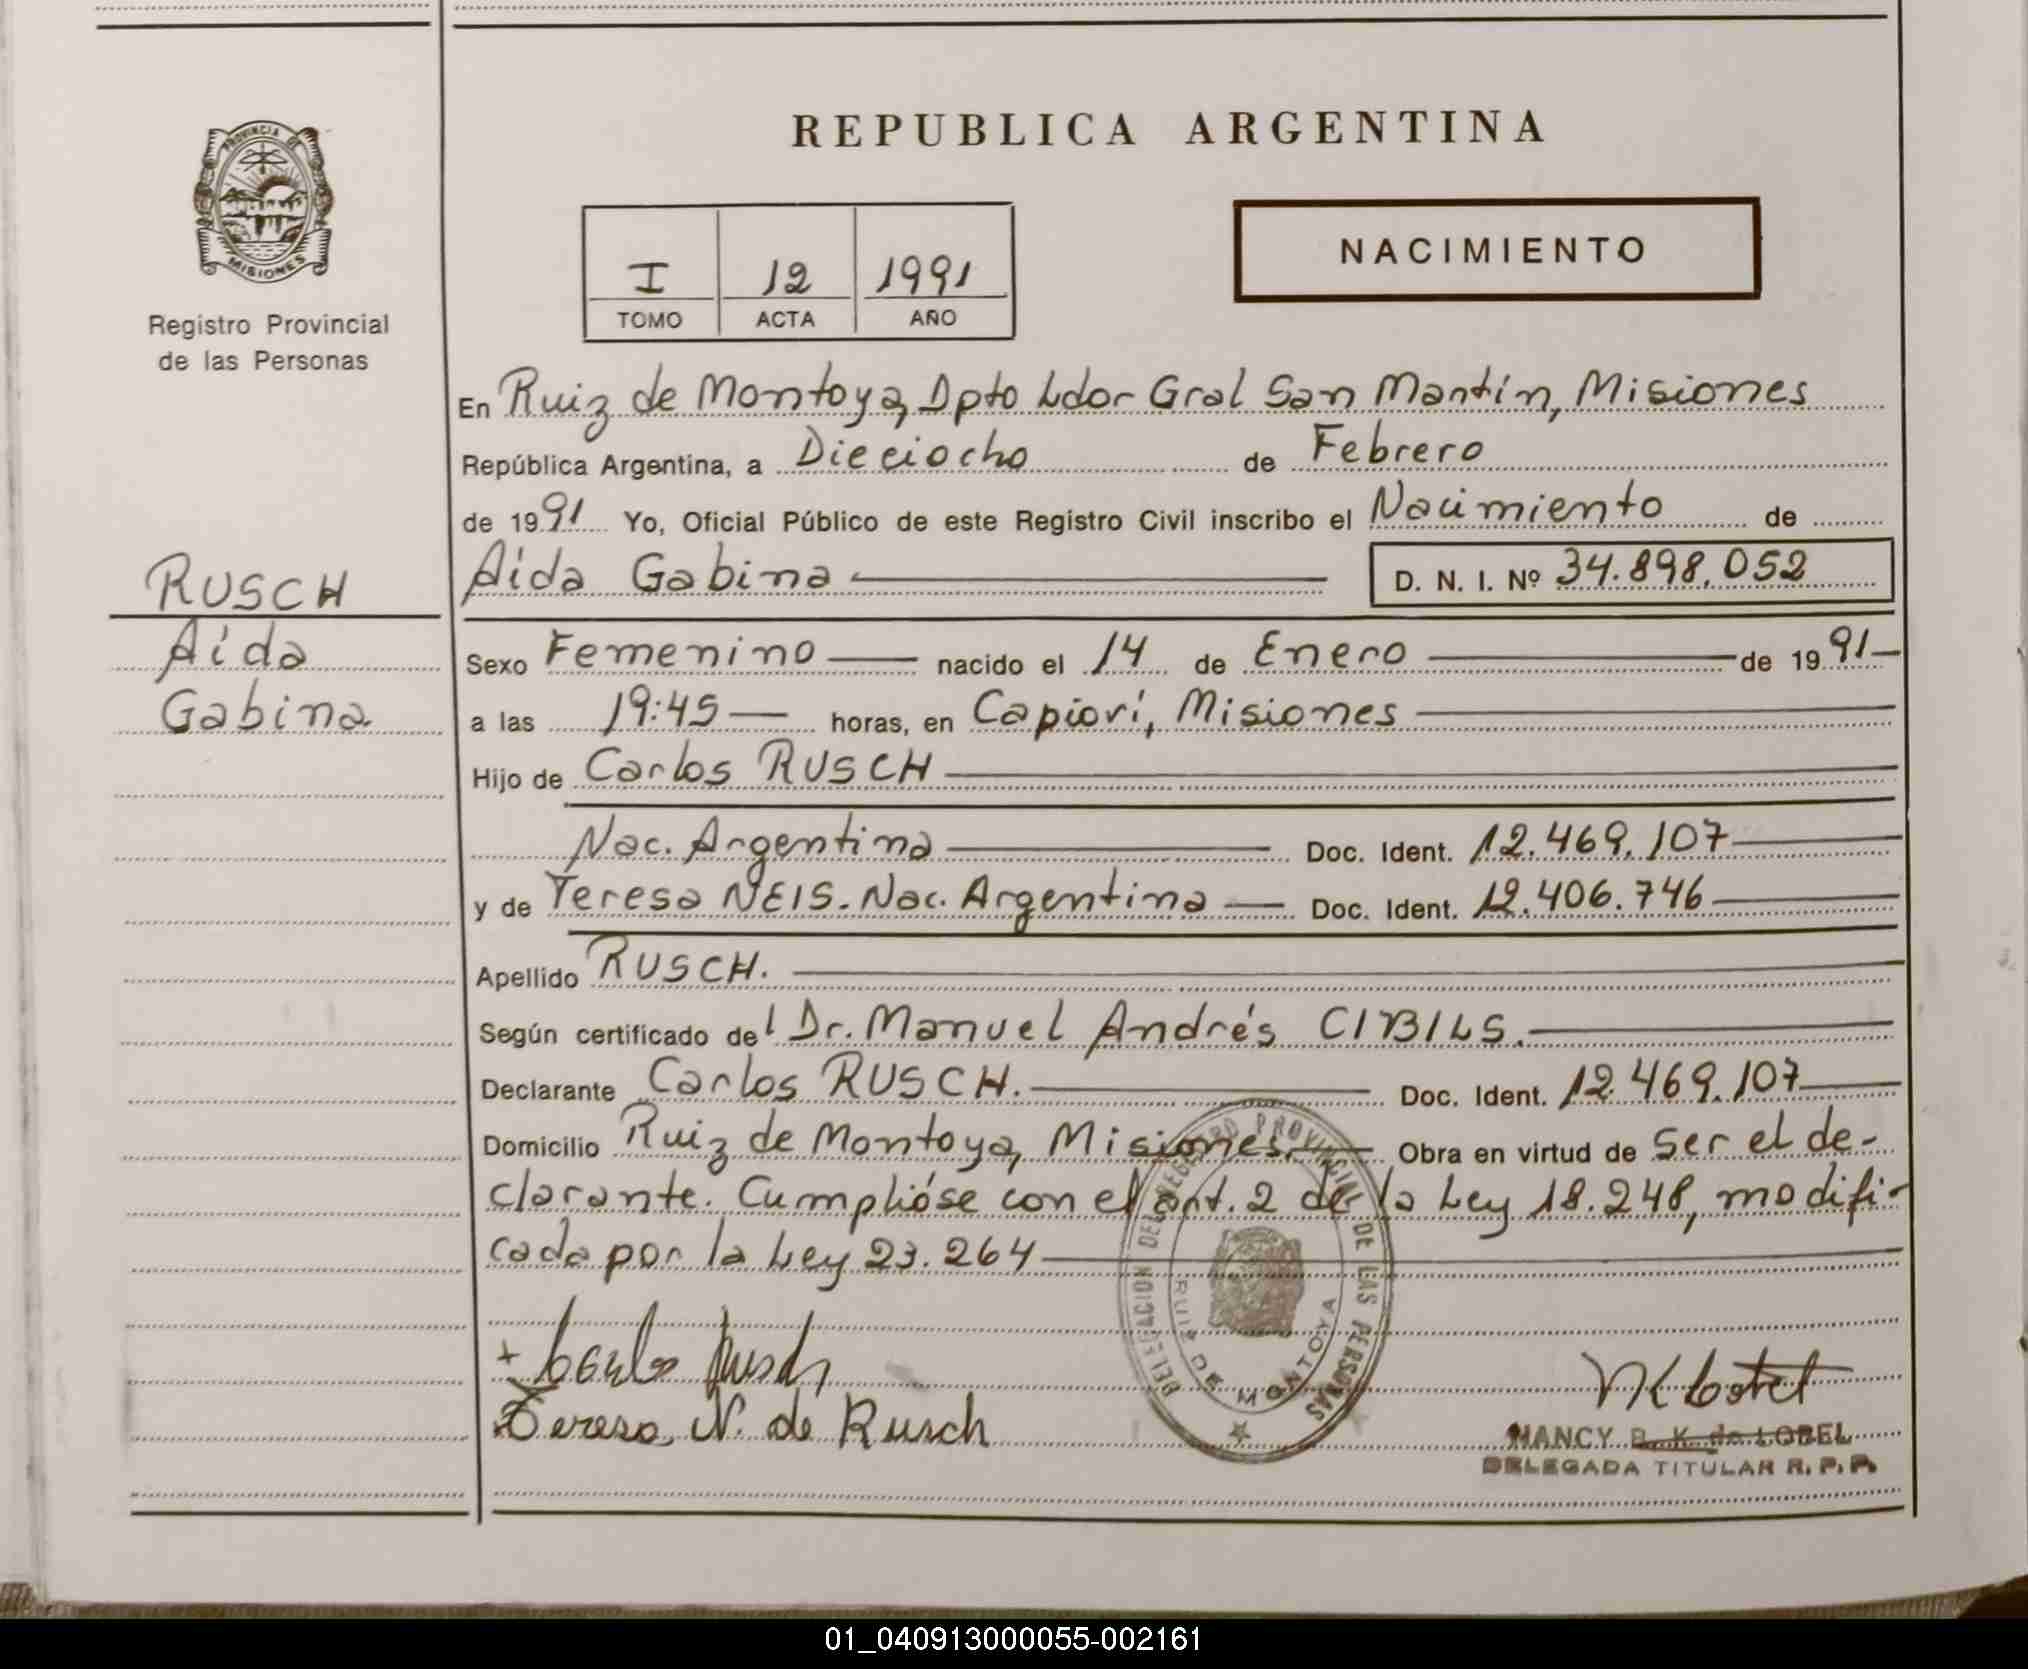 PROVINCIA DE
MISIONES
Registro Provincial
de las Personas
REPUBLICA ARGENTINA
I 12 1991
TOMO ACTA AÑO
NACIMIENTO
En Ruiz de Montoya, Dpto Ldor Gral San Martín, Misiones
República Argentina, a Dieciocho de Febrero
de 1991 Yo, Oficial Público de este Registro Civil inscribo el Nacimiento de
Aída Gabina D. N. I. Nº 34.898.052
RUSCH
Aída
Gabina
Sexo Femenino nacido el 14 de Enero de 1991
a las 19:45 horas, en Capioví, Misiones
Hijo de Carlos RUSCH
Nac. Argentina Doc. Ident. 12.469.107
y de Teresa NEIS. Nac. Argentina Doc. Ident. 12.406.746
Apellido RUSCH.
Según certificado del Dr. Manuel Andrés CIBILS.
Declarante Carlos RUSCH. Doc. Ident. 12.469.107
Domicilio Ruiz de Montoya, Misiones. Obra en virtud de ser el de-
clarante. Cumplióse con el art. 2 de la Ley 18.248, modifi-
cada por la Ley 23.264
DELEGACION DEL REGISTRO PROVINCIAL DE LAS PERSONAS
RUIZ DE MONTOYA
+ Carlos Rusch
Teresa N. de Rusch
NANCY B. K. de LOBEL
DELEGADA TITULAR R. P. P.
01_040913000055-002161